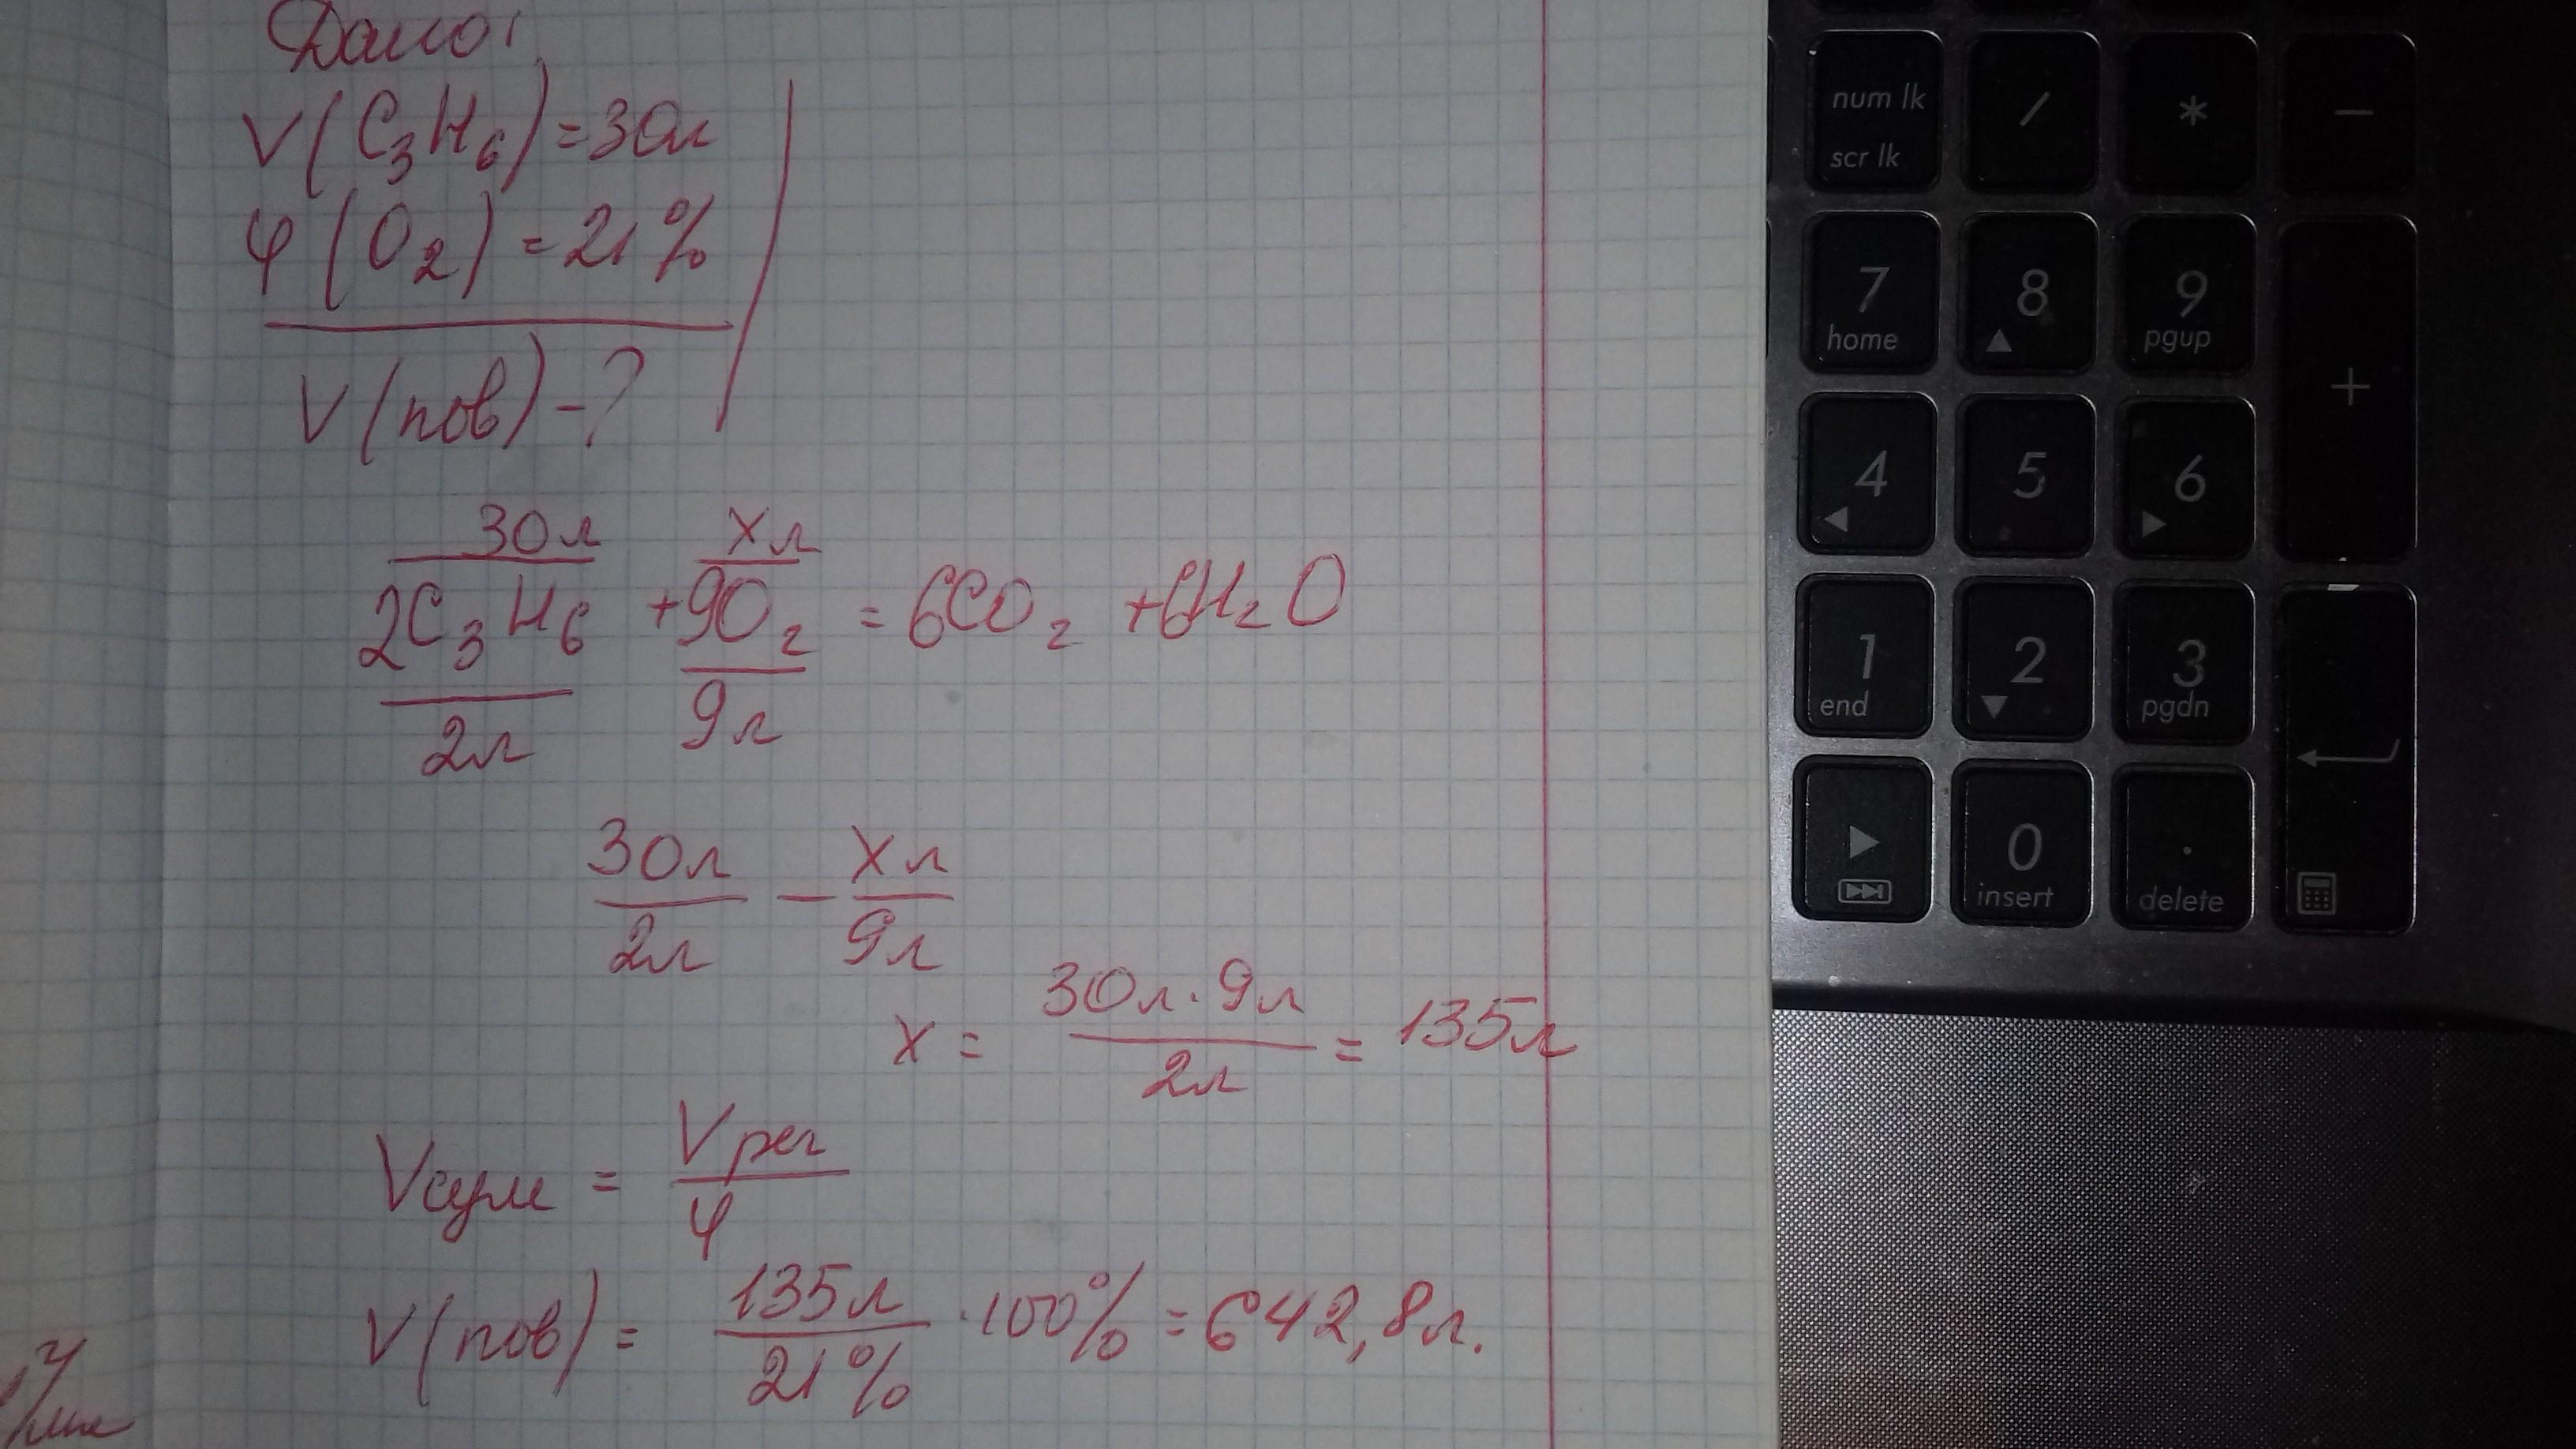 Дано:
V(C₃H₆)=30л
φ(O₂)=21%
V(пов)-?
30л xл
2C₃H₆ +9O₂ = 6CO₂ +6H₂O
2л 9л
30л/2л — xл/9л
x = 30л·9л/2л = 135л
Vсум = Vреч/φ
V(пов) = 135л/21% ·100% = 642,8л.
num lk / * −
scr lk
7 8 9
home pgup
+
4 5 6
1 2 3
end pgdn
0 .
insert delete